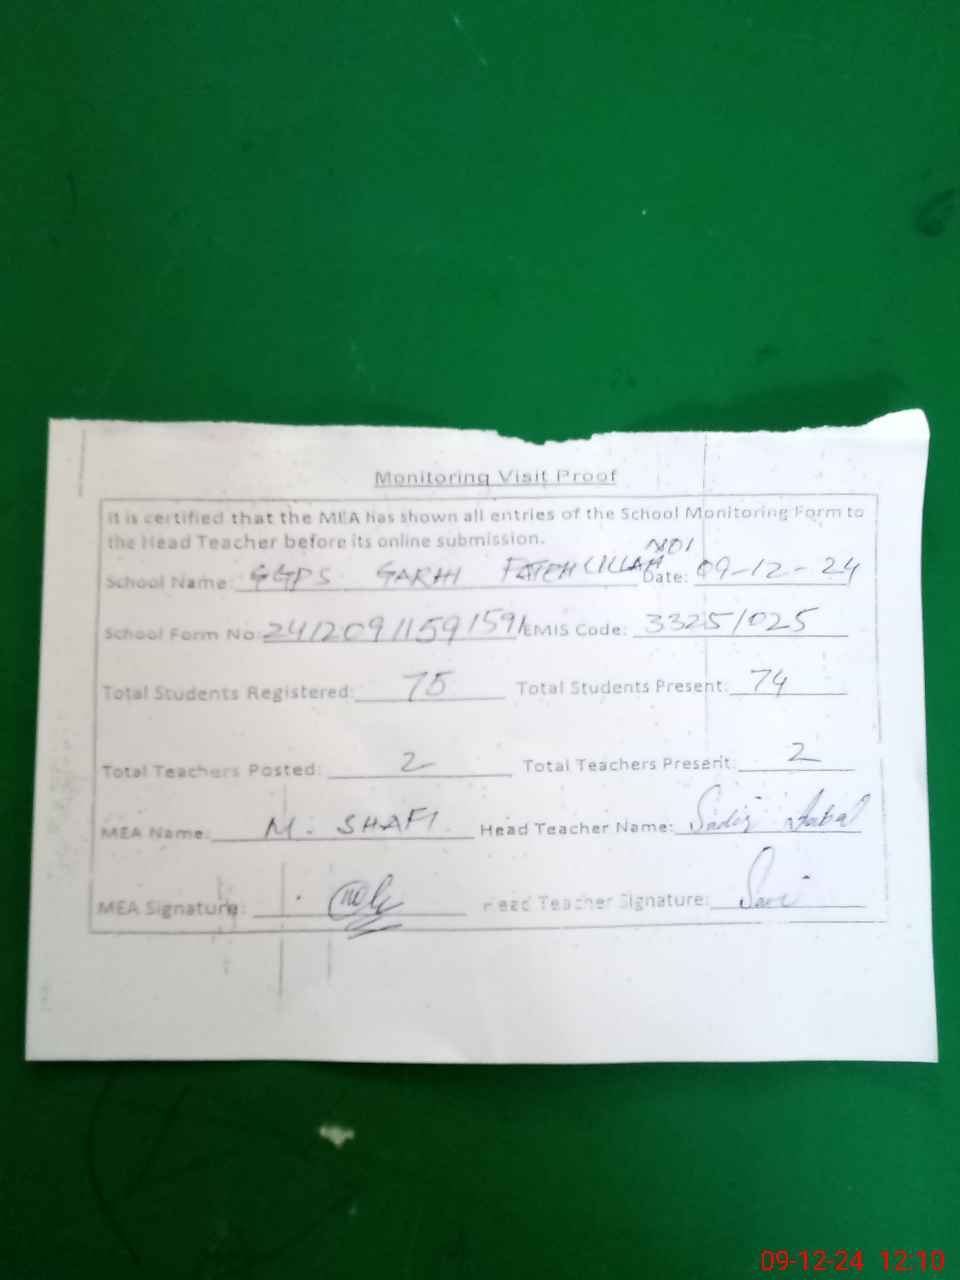 Monitoring Visit Proof
It is certified that the MEA has shown all entries of the School Monitoring Form to
the Head Teacher before its online submission.
School Name: GGPS GARHI FATEHULLAH NO1 Date: 09-12-24
School Form No: EMIS Code: 33251025
Total Students Registered: 75 Total Students Present: 74
Total Teachers Posted: 2 Total Teachers Present: 2
MEA Name: M. SHAFI Head Teacher Name:
MEA Signature: Head Teacher Signature:
09-12-24 12:10